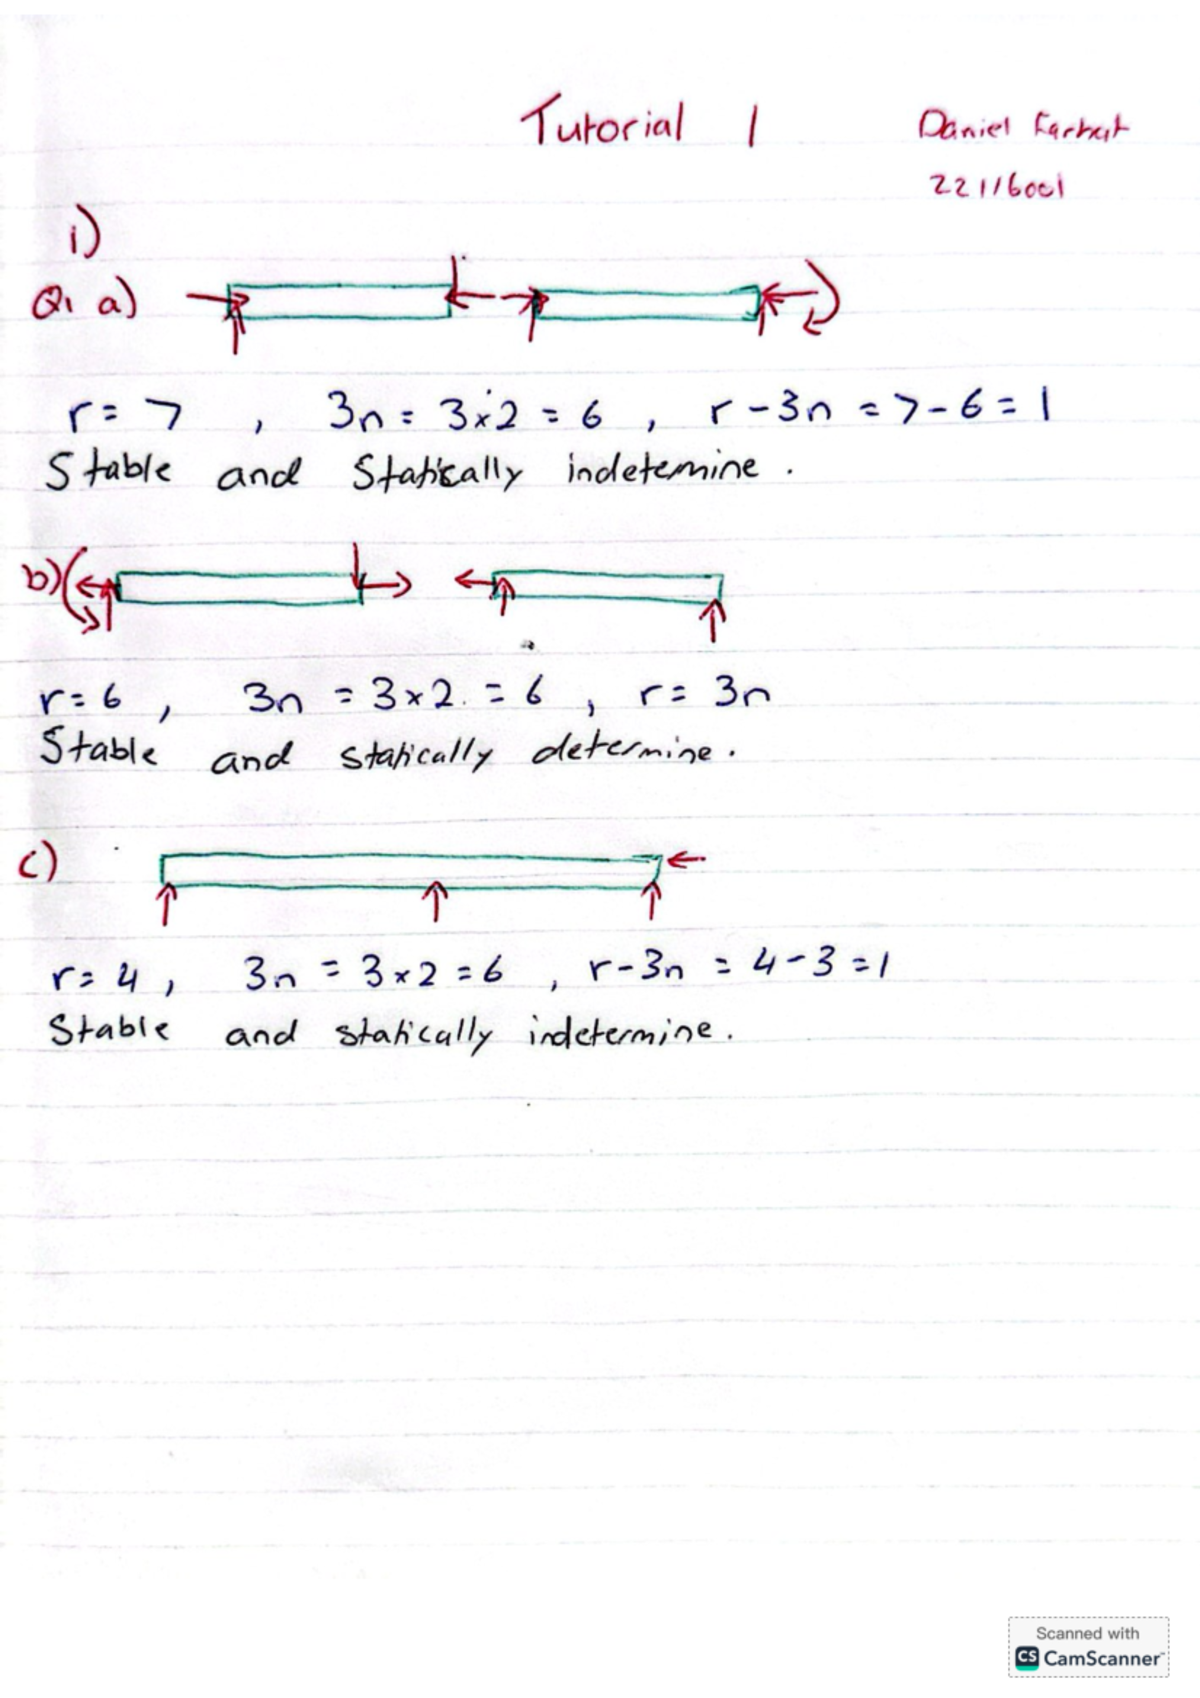 Tutorial 1
Daniel Farhat
22116001
i)
Q1 a)
r = 7 , 3n = 3×2 = 6 , r - 3n = 7 - 6 = 1
Stable and Statically indetemine .
b)
r = 6 , 3n = 3×2. = 6 , r = 3n
Stable and statically determine .
c)
r = 4 , 3n = 3×2 = 6 , r - 3n = 4 - 3 = 1
Stable and statically indetermine .
Scanned with
CS CamScanner